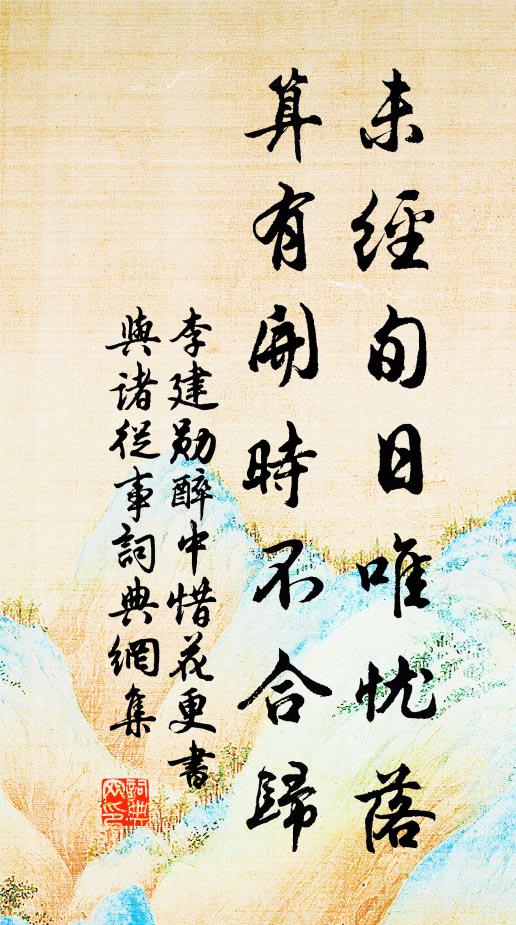 未經旬日唯忧落
算有開時不合歸
李建勋醉中惜花更書
與诸從事詞典網集
詞典
网印